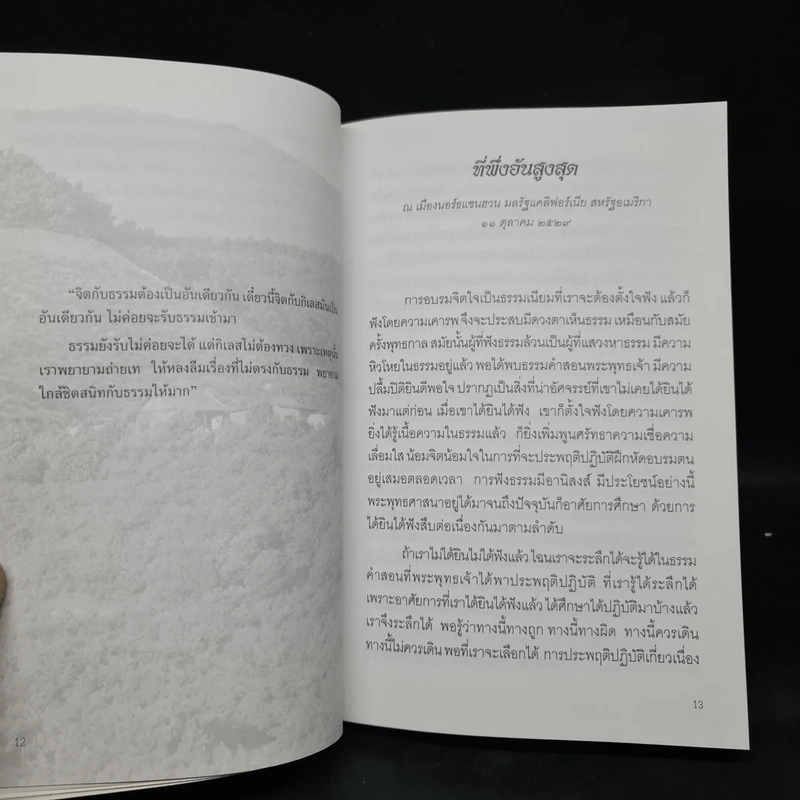 “จิตกับธรรมต้องเป็นอันเดียวกัน เดี๋ยวนี้จิตกับกิเลสมันเป็น
อันเดียวกัน ไม่ค่อยจะรับธรรมเข้ามา
ธรรมยังรับไม่ค่อยจะได้ แต่กิเลสไม่ต้องทวง เพราะเหตุนั้น
เราพยายามถ่ายเท ให้หลงลืมเรื่องที่ไม่ตรงกับธรรม พยายาม
ใกล้ชิดสนิทกับธรรมให้มาก”
12
ที่พึ่งอันสูงสุด
ณ เมืองนอร์ธแซนฮวน มลรัฐแคลิฟอร์เนีย สหรัฐอเมริกา
๑๑ ตุลาคม ๒๕๒๙
การอบรมจิตใจเป็นธรรมเนียมที่เราจะต้องตั้งใจฟัง แล้วก็
ฟังโดยความเคารพ จึงจะประสบมีดวงตาเห็นธรรม เหมือนกับสมัย
ครั้งพุทธกาล สมัยนั้นผู้ที่ฟังธรรมล้วนเป็นผู้ที่แสวงหาธรรม มีความ
หิวโหยในธรรมอยู่แล้ว พอได้พบธรรมคำสอนพระพุทธเจ้า มีความ
ปลื้มปิติยินดีพอใจ ปรากฏเป็นสิ่งที่น่าอัศจรรย์ที่เขาไม่เคยได้ยินได้
ฟังมาแต่ก่อน เมื่อเขาได้ยินได้ฟัง เขาก็ตั้งใจฟังโดยความเคารพ
ยิ่งได้รู้เนื้อความในธรรมแล้ว ก็ยิ่งเพิ่มพูนศรัทธาความเชื่อความ
เลื่อมใส น้อมจิตน้อมใจในการที่จะประพฤติปฏิบัติฝึกหัดอบรมตน
อยู่เสมอตลอดเวลา การฟังธรรมมีอานิสงส์ มีประโยชน์อย่างนี้
พระพุทธศาสนาอยู่ได้มาจนถึงปัจจุบันก็อาศัยการศึกษา ด้วยการ
ได้ยินได้ฟังสืบต่อเนื่องกันมาตามลำดับ
ถ้าเราไม่ได้ยินไม่ได้ฟังแล้ว ไฉนเราจะระลึกได้จะรู้ได้ในธรรม
คำสอนที่พระพุทธเจ้าได้พาประพฤติปฏิบัติ ที่เรารู้ได้ระลึกได้
เพราะอาศัยการที่เราได้ยินได้ฟังแล้ว ได้ศึกษาได้ปฏิบัติมาบ้างแล้ว
เราจึงระลึกได้ พอรู้ว่าทางนี้ทางถูก ทางนี้ทางผิด ทางนี้ควรเดิน
ทางนี้ไม่ควรเดิน พอที่เราจะเลือกได้ การประพฤติปฏิบัติเกี่ยวเนื่อง
13